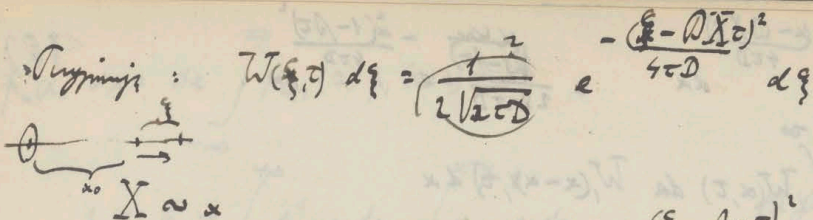 Przyjmując : W(ξ,τ) dξ = \frac{1}{2\sqrt{πτD}} e^{-\frac{(ξ-βXτ)^2}{4τD}} dξ
ξ
x_0
X ∼ x